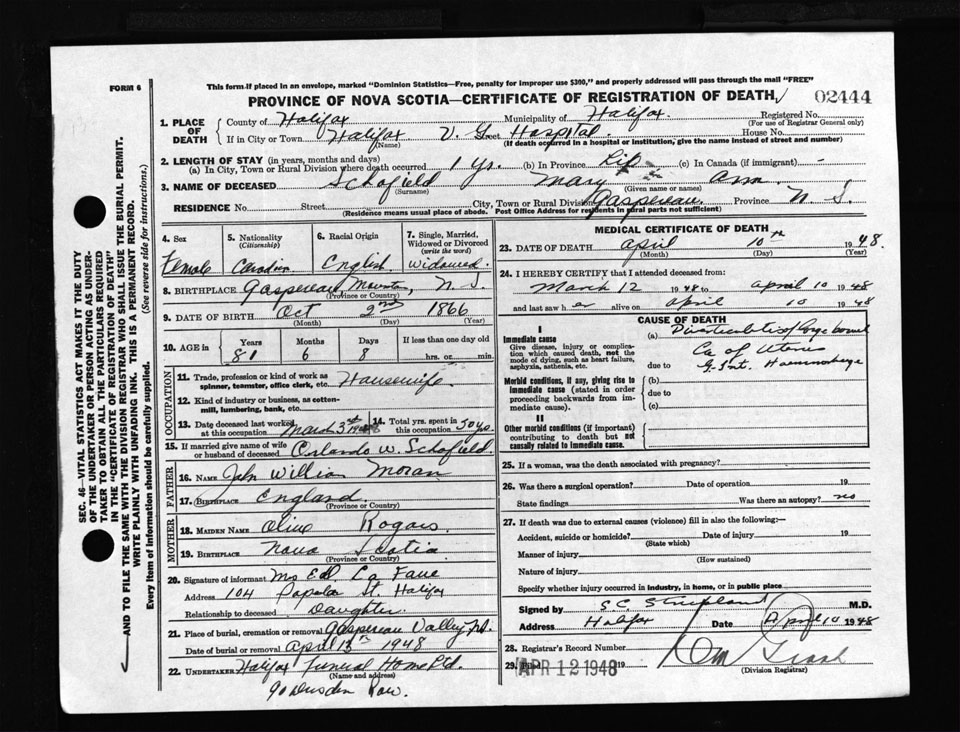 FORM 6
This form if placed in an envelope, marked "Dominion Statistics—Free, penalty for improper use $300," and properly addressed will pass through the mail "FREE"
PROVINCE OF NOVA SCOTIA—CERTIFICATE OF REGISTRATION OF DEATH
02444
1. PLACE OF DEATH
County of Halifax Municipality of Halifax. Registered No.
(For use of Registrar General only)
If in City or Town Halifax V. G. Street Hospital. House No.
(Name) (If death occurred in a hospital or institution, give the name instead of street and number)
2. LENGTH OF STAY (in years, months and days)
(a) In City, Town or Rural Division where death occurred 1 yr. (b) In Province Life (c) In Canada (if immigrant) -
3. NAME OF DECEASED Schofield Mary Ann.
(Surname) (Given name or names)
RESIDENCE No. Street City, Town or Rural Division Gaspereau. Province N. S.
(Residence means usual place of abode. Post Office Address for residents in rural parts not sufficient)
4. Sex Female
5. Nationality (Citizenship) Canadian
6. Racial Origin English
7. Single, Married, Widowed or Divorced (write the word) Widowed.
8. BIRTHPLACE Gaspereau Mountain, N. S.
(Province or Country)
9. DATE OF BIRTH Oct 2nd 1866
(Month) (Day) (Year)
10. AGE in Years Months Days If less than one day
81 6 8 hrs. or min.
OCCUPATION
11. Trade, profession or kind of work as spinner, teamster, office clerk, etc. Housewife.
12. Kind of industry or business, as cotton-mill, lumbering, bank, etc.
13. Date deceased last worked at this occupation March 3rd 1948
14. Total yrs. spent in this occupation 50 yrs.
15. If married give name of wife or husband of deceased Orlando W. Schofield.
FATHER
16. NAME John William Moran
17. BIRTHPLACE England.
(Province or Country)
MOTHER
18. MAIDEN NAME Olive Rogars.
19. BIRTHPLACE Nova Scotia
(Province or Country)
20. Signature of informant Mrs Ed. La Faue
Address 104 St. Halifax
Relationship to deceased Daughter.
21. Place of burial, cremation or removal Gaspereau Valley, N.S.
Date of burial or removal April 13th 1948
22. UNDERTAKER Halifax Funeral Home Ltd.
(Name and address)
90 Row.
MEDICAL CERTIFICATE OF DEATH
23. DATE OF DEATH April 10th 1948.
(Month) (Day) (Year)
24. I HEREBY CERTIFY that I attended deceased from:
March 12 1948 to April 10 1948
and last saw her alive on April 10 1948
CAUSE OF DEATH
I
Immediate cause
Give disease, injury or complication which caused death, not the mode of dying, such as heart failure, asphyxia, asthenia, etc.
(a) Diverticulitis of large bowel
Ca of Uterus
due to G. Int. Haemorrhage
Morbid conditions, if any, giving rise to immediate cause (stated in order proceeding backwards from immediate cause).
(b)
due to
(c)
II
Other morbid conditions (if important) contributing to death but not causally related to immediate cause.
25. If a woman, was the death associated with pregnancy?
26. Was there a surgical operation? Date of operation 19
State findings Was there an autopsy? no
27. If death was due to external causes (violence) fill in also the following:—
Accident, suicide or homicide? Date of injury 19
(State which)
Manner of injury
(How sustained)
Nature of injury
Specify whether injury occurred in industry, in home, or in public place
Signed by S.C. M.D.
Address Halifax Date April 10 1948
28. Registrar's Record Number
29. Filed APR 12 1948 19
(Division Registrar)
SEC. 46—VITAL STATISTICS ACT MAKES IT THE DUTY
OF THE UNDERTAKER OR PERSON ACTING AS UNDER-
TAKER TO OBTAIN ALL THE PARTICULARS REQUIRED
IN THE "CERTIFICATE OF REGISTRATION OF DEATH"
—AND TO FILE THE SAME WITH THE DIVISION REGISTRAR WHO SHALL ISSUE THE BURIAL PERMIT.
WRITE PLAINLY WITH UNFADING INK. THIS IS A PERMANENT RECORD.
Every item of information should be carefully supplied. (See reverse side for instructions.)